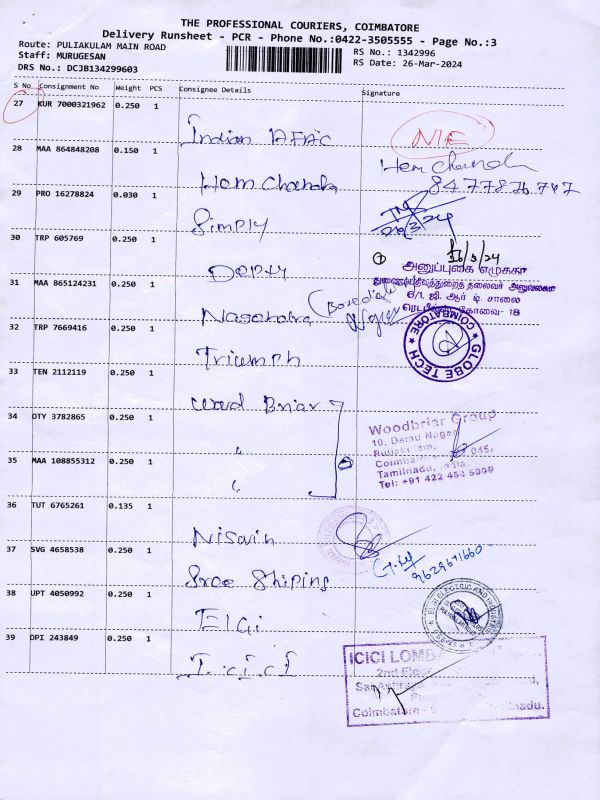 THE PROFESSIONAL COURIERS, COIMBATORE
Delivery Runsheet - PCR - Phone No.:0422-3505555 - Page No.:3
Route: PULIAKULAM MAIN ROAD
RS No.: 1342996
Staff: MURUGESAN
RS Date: 26-Mar-2024
DRS No.: DCJB134299603
S No Consignment No Weight PCS Consignee Details Signature
27 KUR 7000321962 0.250 1
Indian
NIE
28 MAA 864848208 0.150 1
Hem Chandra
Hem Chandra
8477876747
29 PRO 16278824 0.030 1
Simply
26/3/24
30 TRP 605769 0.250 1
26/3/24
அனுப்புகை எழுத்தர்
துணைப்பதிவுத்துறைத் தலைவர் அலுவலகம்
31 MAA 865124231 0.250 1
6/1, ஜி. ஆர் டி. சாலை
கோவை- 18
32 TRP 7669416 0.250 1
Triumph
COIMBATORE
GLOBE TECH
33 TEN 2112119 0.250 1
Wood Briar
34 DTY 3782865 0.250 1
"
Woodbriar Group
10, Damu Nagar
Coimbatore 045,
Tamilnadu, India.
Tel: +91 422
35 MAA 108855312 0.250 1
"
36 TUT 6765261 0.135 1
37 SVG 4658538 0.250 1
Sree Shiping
9629671660
38 UPT 4050992 0.250 1
ELGi
ELGI ELECTRIC AND
39 DPI 243849 0.250 1
I.C.I.C.I
ICICI LOMBARD
2nd Floor
Coimbatore
Tamilnadu.